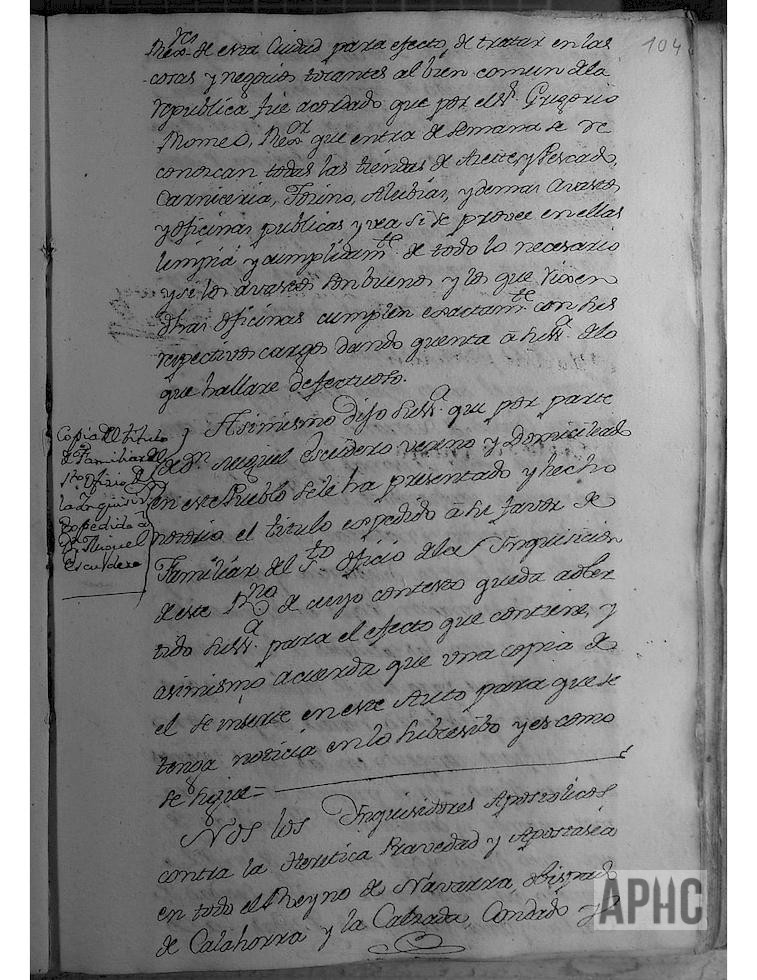 104
Rexres de esta Ciudad para efecto, de tratar en las
cosas y negocios tocantes al bien comun dela
republica fue acordado que por el Sr. Grigorio
Romeo, Rexor que entra de semana se re
conozcan todas las tiendas de Aceite, y Pescado,
Carniceria, Tozino, Alubias, y demas avastos
y oficinas publicas y vea si se provee en ellas
limpia y cumplidamte. de todo lo necesario
y si los avastos son buenos y los que rixen
dhas oficinas cumplen exactamte. con sus
respectivos cargos dando quenta â su Sa. delo
que hallare defectuoso.
Copia del titulo
de Familiar del
sto. Oficio de
la Inquisizn
expedido a
Dn. Miguel
Escudero
y Asimismo dijo su Sa. que por parte
de Dn. Miguel Escudero vezino y Domiciliado
en este Pueblo se le ha presentado y hecho
notorio el titulo expedido â su favor de
Familiar del Sto. Oficio dela Inquisicion
de este Rno. de cuyo contexto queda adver
tido su Sa. para el efecto que contiene, y
asimismo acuerda que una copia de
el se inserte en este Auto para que se
tenga noticia en lo subcesibo y es como
se sigue =
Nos los Inquisidores Apostolicos
contra la Heretica Pravedad y Apostasia
en todo el Reyno de Navarra, obispado
de Calahorra y la Calzada, Condado y
APHC